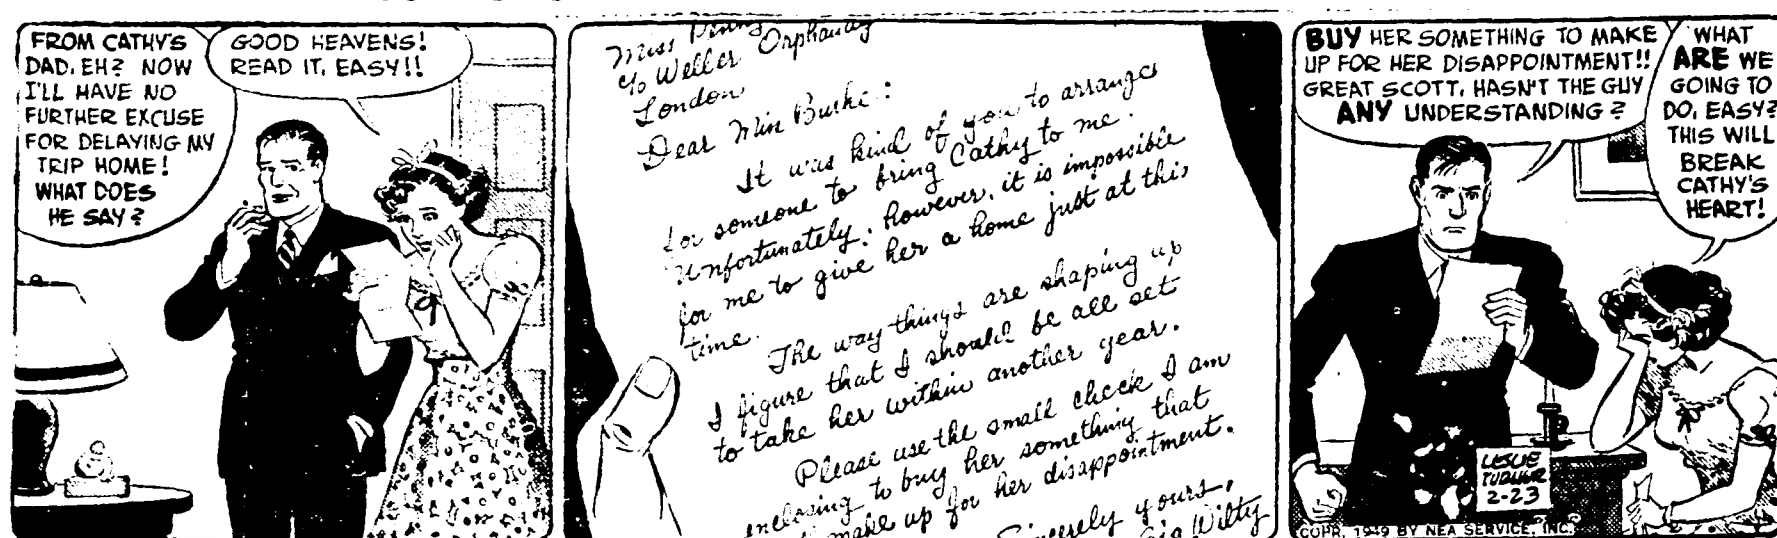 FROM CATHY'S
DAD, EH? NOW
I'LL HAVE NO
FURTHER EXCUSE
FOR DELAYING MY
TRIP HOME!
WHAT DOES
HE SAY?
GOOD HEAVENS!
READ IT, EASY!!
Miss Penny
c/o Weller Orphanag
London
Dear Miss Burke:
It was kind of you to arrange
for someone to bring Cathy to me.
Unfortunately, however, it is impossible
for me to give her a home just at this
time.
The way things are shaping up
I figure that I should be all set
to take her within another year.
Please use the small check I am
enclosing to buy her something that
make up for her disappointment.
Sincerely yours,
Wilty
BUY HER SOMETHING TO MAKE
UP FOR HER DISAPPOINTMENT!!
GREAT SCOTT, HASN'T THE GUY
ANY UNDERSTANDING?
WHAT
ARE WE
GOING TO
DO, EASY?
THIS WILL
BREAK
CATHY'S
HEART!
LESLIE
TURNER
2-23
COPR. 1949 BY NEA SERVICE, INC.